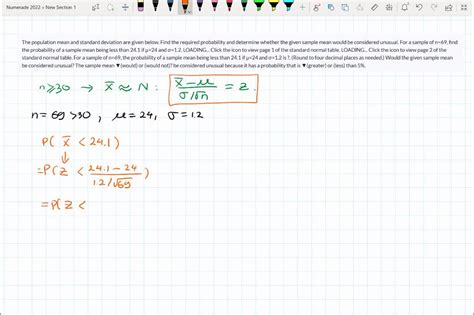 Numerade 2022 » New Section 1
The population mean and standard deviation are given below. Find the required probability and determine whether the given sample mean would be considered unusual. For a sample of n=69, find
the probability of a sample mean being less than 24.1 if μ=24 and σ=1.2. LOADING... Click the icon to view page 1 of the standard normal table. LOADING... Click the icon to view page 2 of the
standard normal table. For a sample of n=69, the probability of a sample mean being less than 24.1 if μ=24 and σ=1.2 is ?. (Round to four decimal places as needed.) Would the given sample mean
be considered unusual? The sample mean ▼(would) or (would not) ?be considered unusual because it has a probability that is ▼(greater) or (less) than 5%.
n≥30 → x̄ ≈ N : (x̄ − μ)/(σ/√n) = Z.
n = 69 > 30 , μ = 24 , σ = 1.2
P( x̄ < 24.1 )
↓
= P( Z < (24.1 − 24)/(1.2/√69) )
= P( Z <